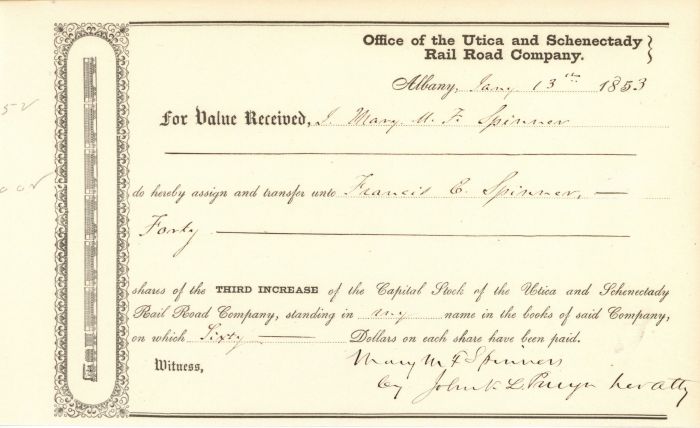 Office of the Utica and Schenectady
Rail Road Company.
Albany, Jany 13th 1853
52
For Value Received, I Mary M. F. Spinner
do hereby assign and transfer unto Francis E. Spinner,
Forty
shares of the THIRD INCREASE of the Capital Stock of the Utica and Schenectady
Rail Road Company, standing in my name in the books of said Company,
on which Sixty Dollars on each share have been paid.
Witness,
Mary M F Spinner
by John V. L. Pruyn her atty